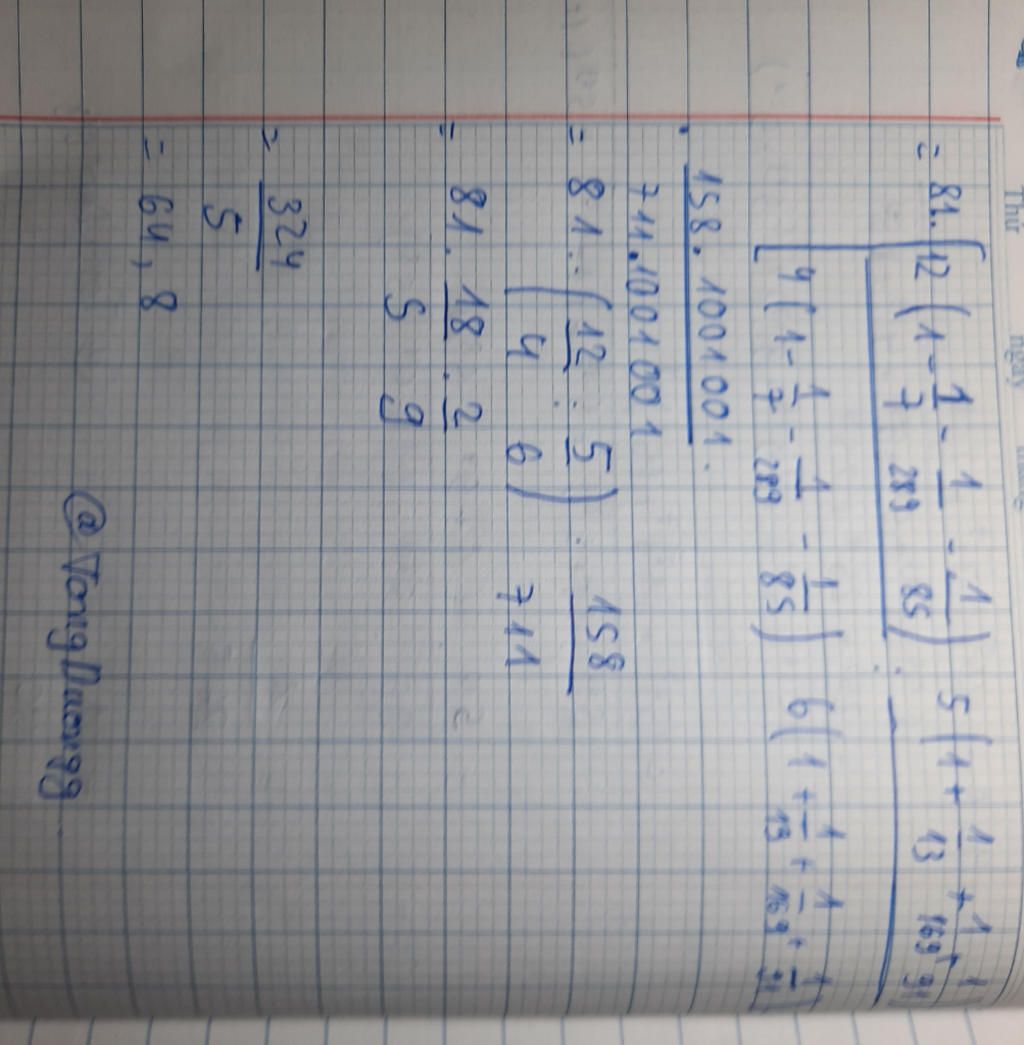 Thứ ngày
= 81. [ 12 ( 1 - 1/7 - 1/289 - 1/85 ) / 4 ( 1 - 1/7 - 1/289 - 1/85 ) : 5 ( 1 + 1/13 + 1/169 + 1/91 ) / 6 ( 1 + 1/13 + 1/169 + 1/91 ) ]
. 158.1001001 / 711.1001001
= 81. ( 12/4 : 5/6 ) . 158/711
= 81. 18/5 . 2/9
= 324/5
= 64,8